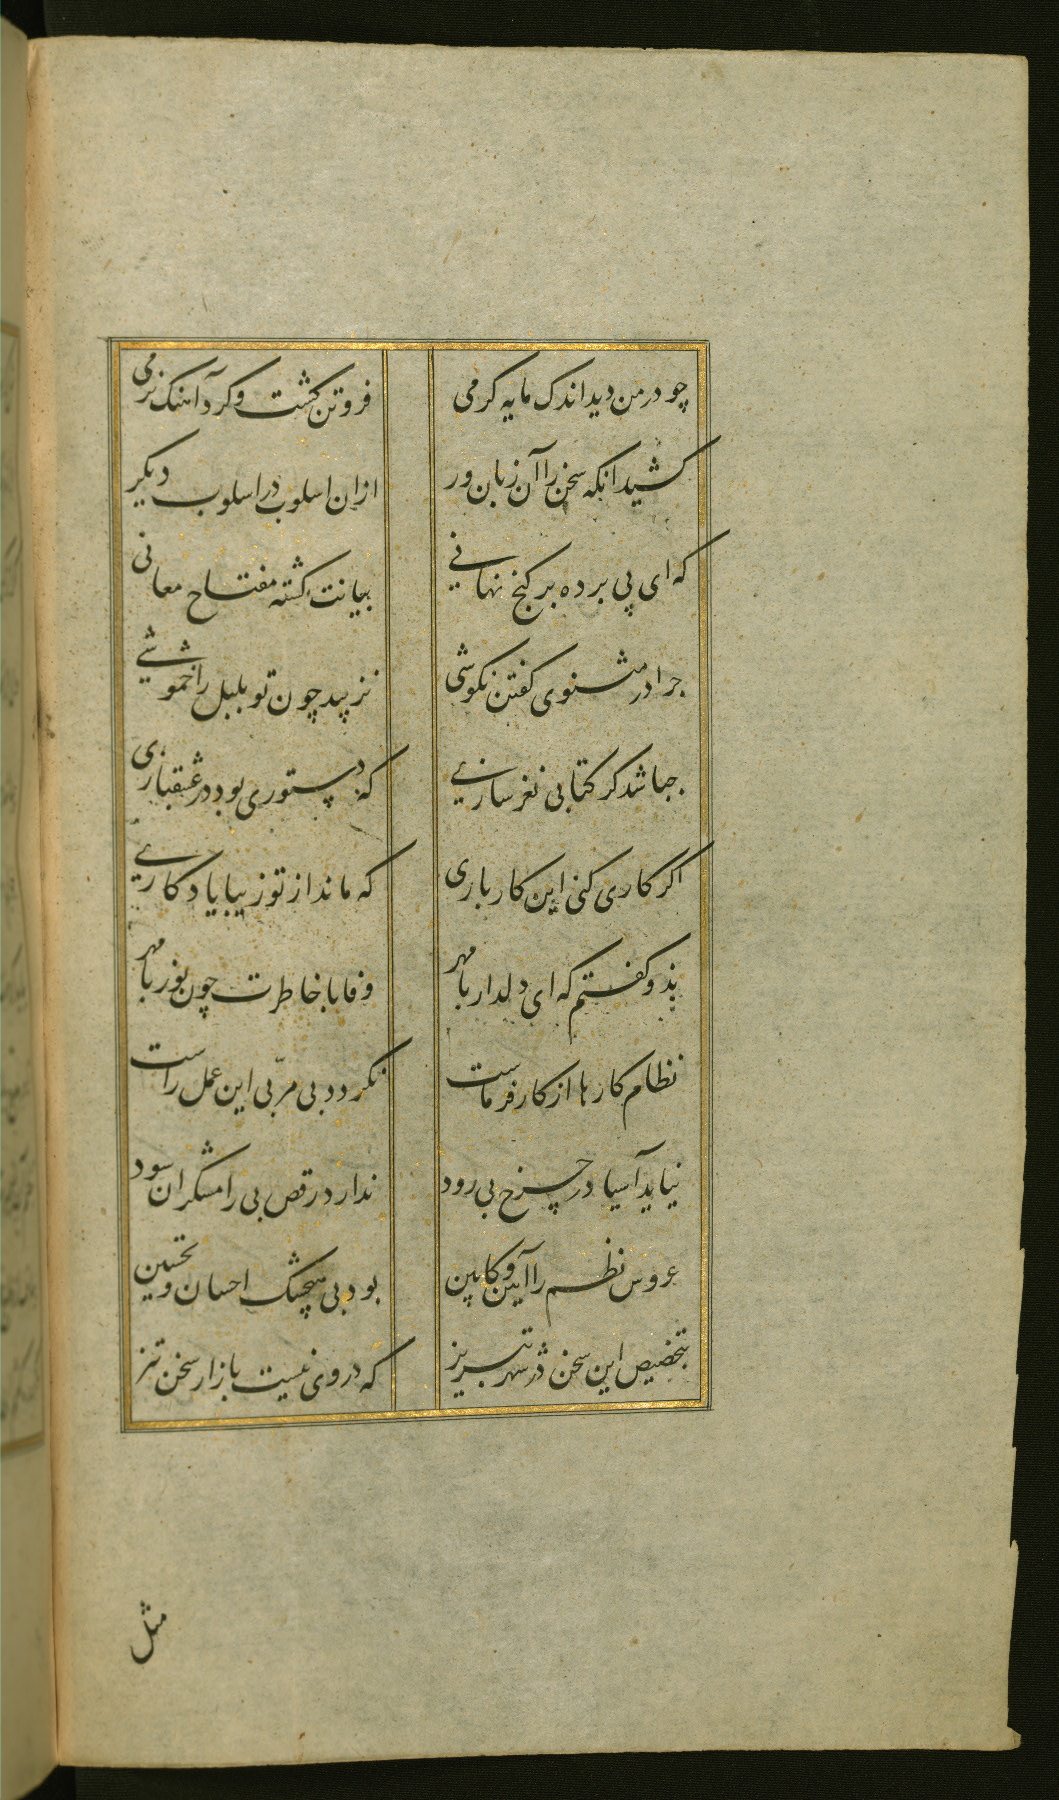 چو در من دید اندک مایه کرمی
فروتن کشت و کرد آهنک نرمی
کشید انکه سخن را آن زبان ور
ازان اسلوب در اسلوب دیکر
که ای پی برده بر کنج نهانی
بیانت کشته مفتاح معانی
چرا در مثنوی کفتن نکوشی
نزیبد چون تو بلبل را خموشی
چباشد کر کتابی نغز سازی
که دستوری بود در عشقبازی
اکر کاری کنی این کار باری
که ماند از تو زیبا یادکاری
بذو کفتم که ای دلدار با مهر
وفا با خاطرت چون نور با مهر
نظام کارها از کار فرماست
نکردد بی مربّی این عمل راست
نیاید آسیا در چرخ بی رود
ندارد رقص بی رامشکران سود
عروس نظم را آیین و کابین
بود بی هیچشک احسان و تحسین
بتخصیص این سخن در شهر تبریز
که در وی نیست بازار سخن تیز
مثل